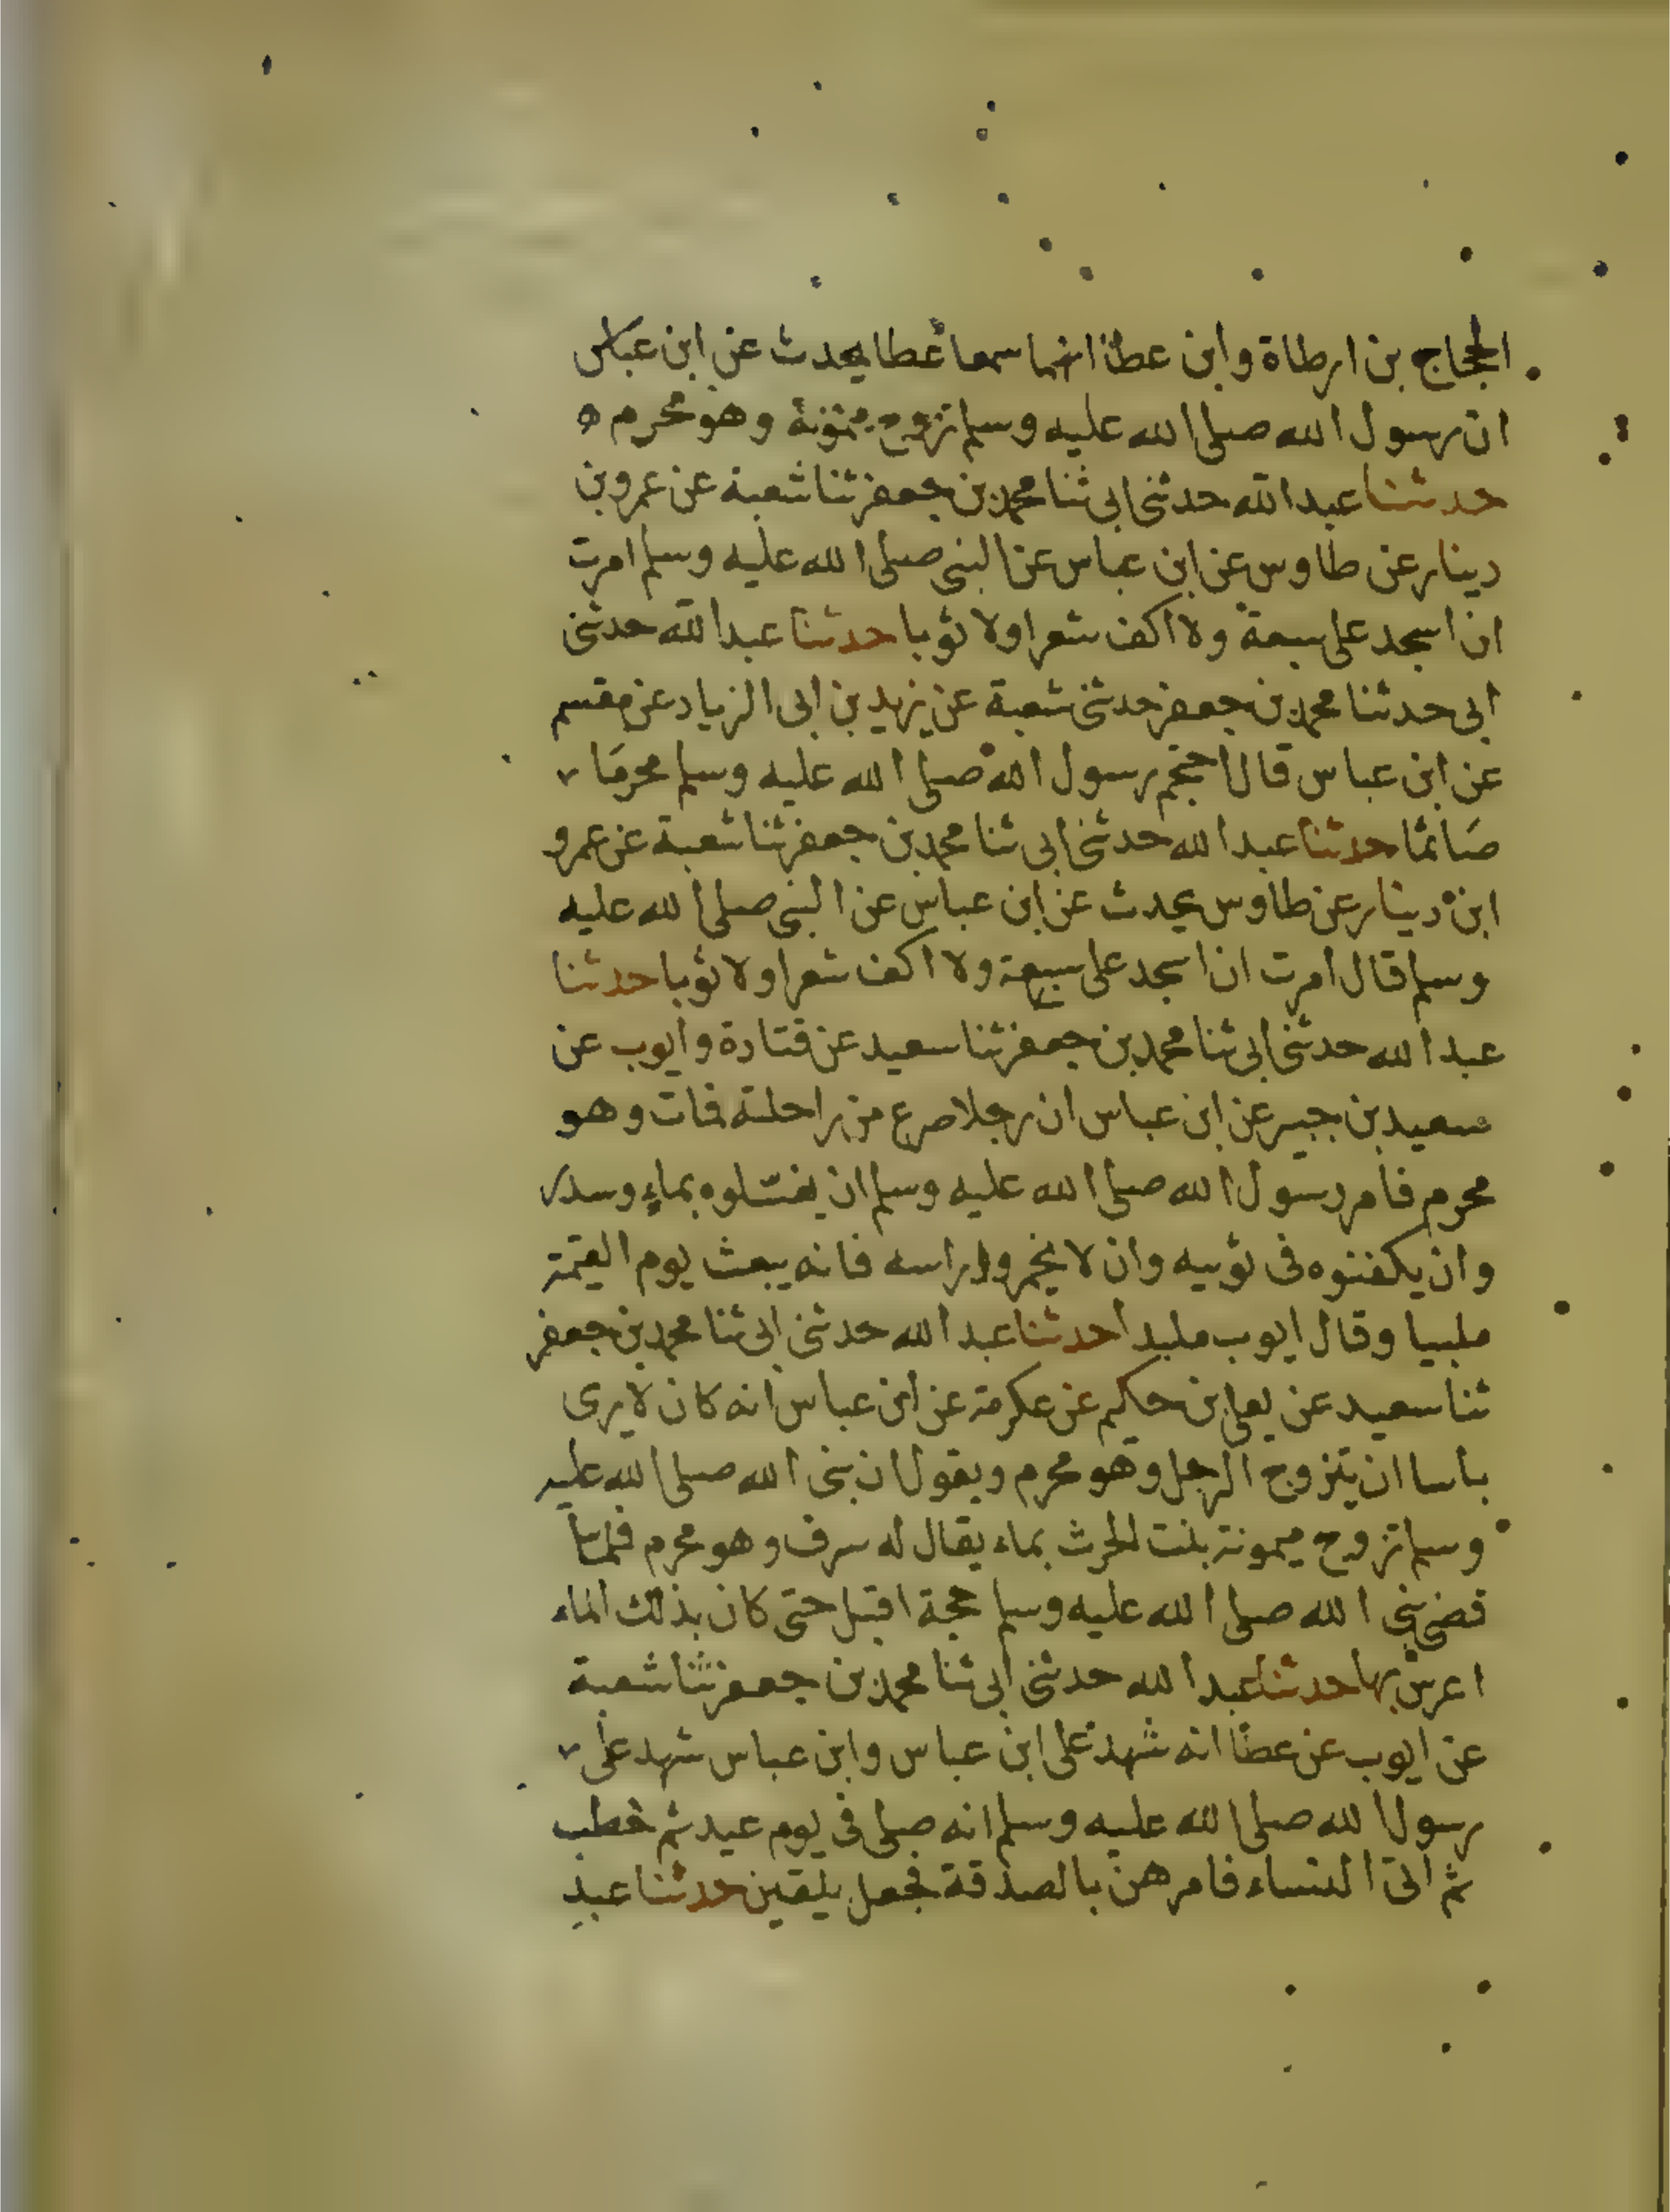 الحجاج بن ارطاة وابن عطا انهما سمعا عطا يحدث عن ابن عباس
ان رسول الله صلى الله عليه وسلم تزوج ميمونة وهو محرم ه
حدثنا عبد الله حدثنى ابى ثنا محمد بن جعفر ثنا شعبة عن عمرو بن
دينار عن طاوس عن ابن عباس عن النبى صلى الله عليه وسلم امرت
ان اسجد على سبعة ولا اكف شعرا ولا ثوبا حدثنا عبد الله حدثنى
ابى حدثنا محمد بن جعفر حدثنى شعبة عن يزيد بن ابى الزياد عن مقسم
عن ابن عباس قال احتجم رسول الله صلى الله عليه وسلم محرمَا
صَائمًا حدثنا عبد الله حدثنى ابى ثنا محمد بن جعفر ثنا شعبة عن عمرو
ابن دينار عن طاوس يحدث عن ابن عباس عن النبى صلى الله عليه
وسلم قال امرت ان اسجد على سبعة ولا اكف شعرا ولا ثوبا حدثنا
عبد الله حدثنى ابى ثنا محمد بن جعفر ثنا سعيد عن قتادة وايوب عن
سعيد بن جبير عن ابن عباس ان رجلا صرع من راحلته فمات وهو
محرم فامر رسول الله صلى الله عليه وسلم ان يغسّلوه بماءٍ وسدر
وان يكفنوه فى ثوبيه وان لا يخمروا راسه فانه يبعث يوم القيمة
ملبيا وقال ايوب ملبدا حدثنا عبد الله حدثنى ابى ثنا محمد بن جعفر
ثنا سعيد عن يعلى بن حكيم عن عكرمة عن ابن عباس انه كان لا يرى
باسا ان يتزوج الرجل وهو محرم ويقول ان نبى الله صلى الله عليه
وسلم تزوج ميمونة بنت الحرث بماء يقال له سرف وهو محرم فلما
قضى نبى الله صلى الله عليه وسلم حجة اقبل حتى كان بذلك الماء
اعرس بها حدثنا عبد الله حدثنى ابى ثنا محمد بن جعفر ثنا شعبة
عن ايوب عن عطا انه شهد على ابن عباس وابن عباس شهد على
رسول الله صلى الله عليه وسلم انه صلى فى يوم عيد ثم خطب
ثم اتى النساء فامرهن بالصدقة فجعل يلقين حدثنا عبد